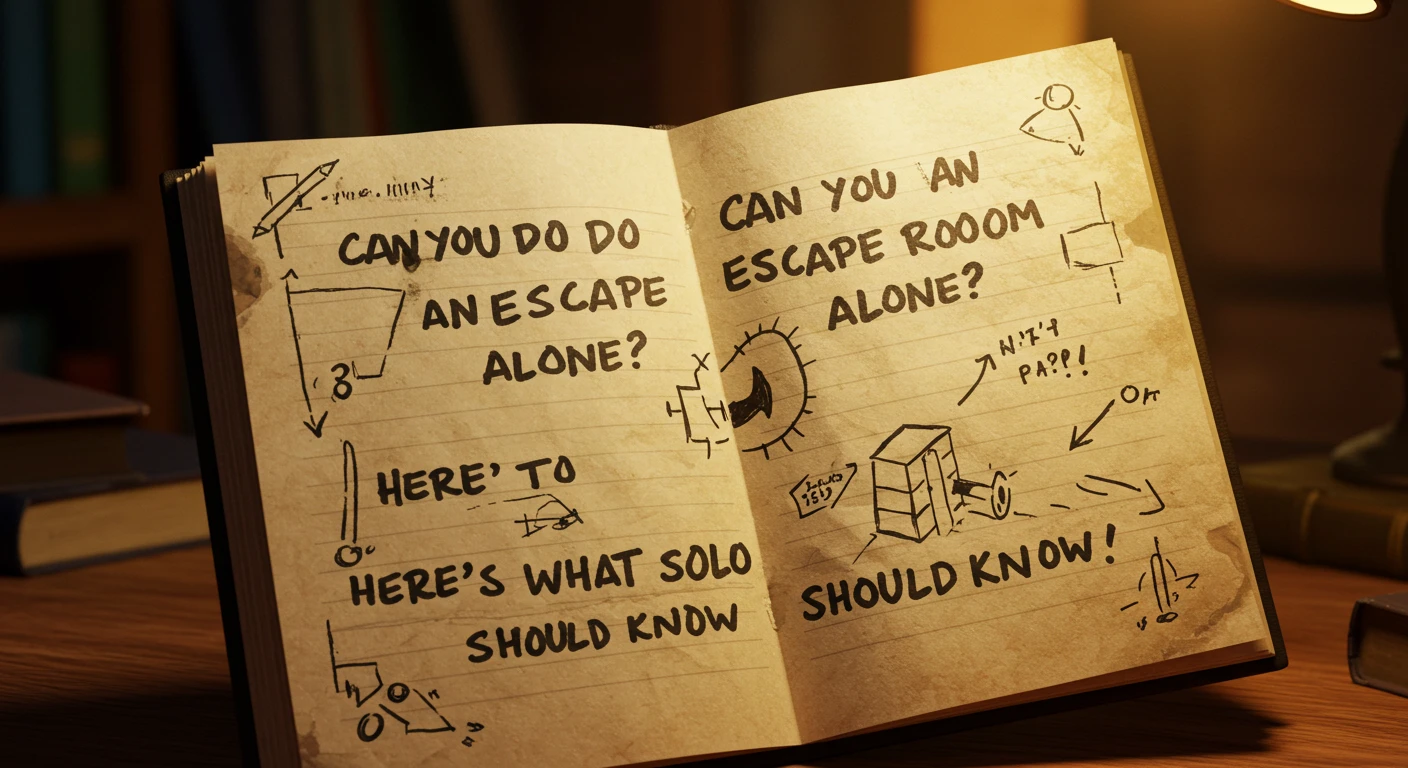 CAN YOU DO DO
AN ESCAPE
ALONE?
HERE' TO
HERE'S WHAT SOLO
SHOULD KNOW
CAN YOU AN
ESCAPE ROOOM
ALONE?
SHOULD KNOW!